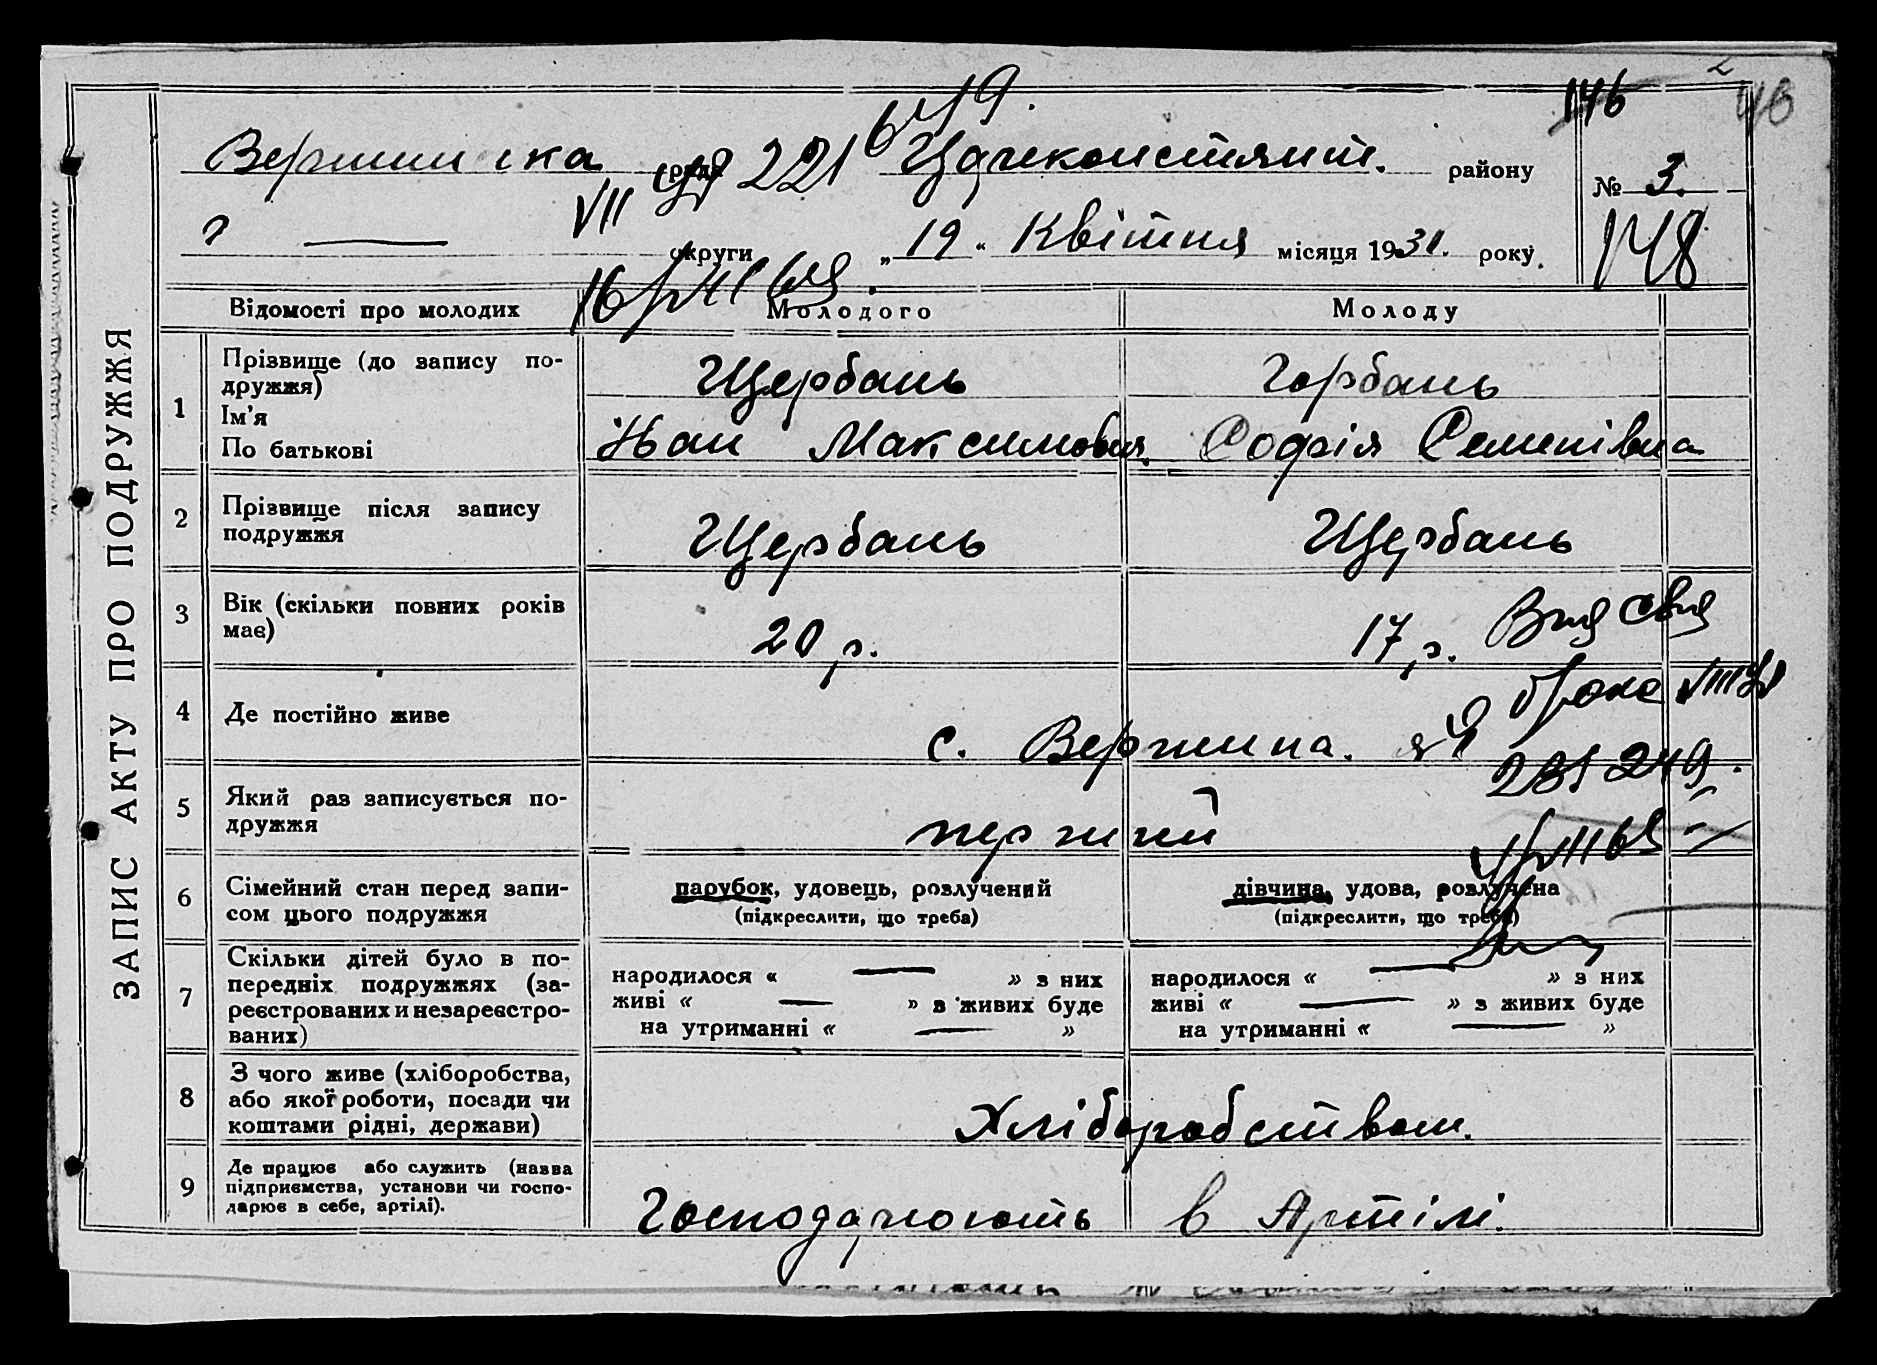 2
146
46
649.
Вершинска ради Цареконстянт. району
VII УР 221
№ 3.
148
округи „19“ Квітня місяця 1931. року.
ЗАПИС АКТУ ПРО ПОДРУЖЖЯ
Відомості про молодих Молодого Молоду
1 Прізвище (до запису по-
дружжя) Щербань Горбань
Ім'я
По батькові Іван Максимович Софія Семенівна
2 Прізвище після запису
подружжя Щербань Щербань
3 Вік (скільки повних років
має) 20 р. 17 р.
4 Де постійно живе с. Вершина.
231249.
5 Який раз записується по-
дружжя перший
6 Сімейний стан перед запи-
сом цього подружжя
парубок, удовець, розлучений
(підкреслити, що треба)
дівчина, удова, розлучена
(підкреслити, що треба)
7 Скільки дітей було в по-
передніх подружжях (за-
реєстрованих и незареєстро-
ваних)
народилося « — » з них
живі « — » з живих буде
на утриманні « — »
народилося « — » з них
живі « — » з живих буде
на утриманні « — »
8 З чого живе (хліборобства,
або якої роботи, посади чи
коштами рідні, держави) Хліборобством.
9 Де працює або служить (назва
підприємства, установи чи госпо-
дарює в себе, артілі). Господарюють в Артілі.